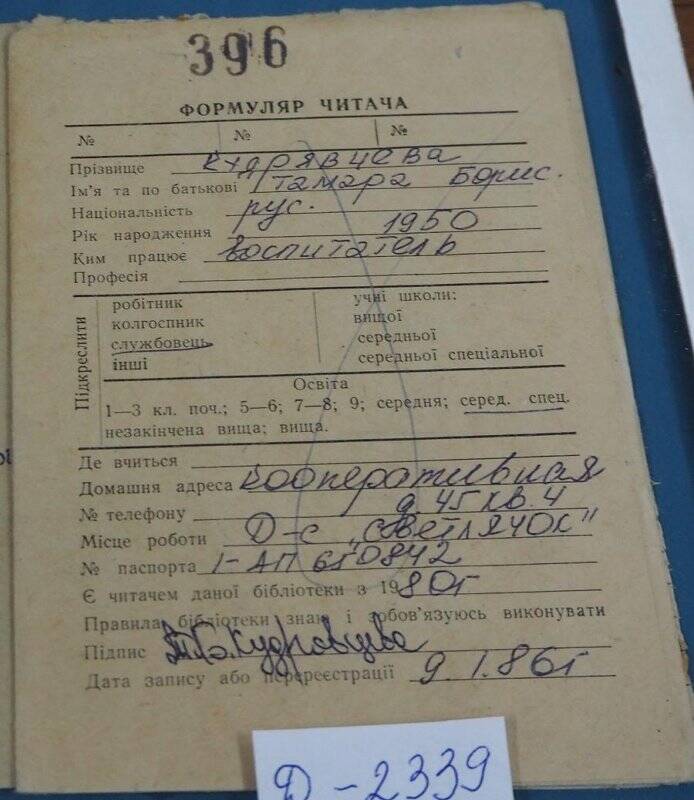 396
ФОРМУЛЯР ЧИТАЧА
№ № №
Прізвище Кудрявцева
Ім'я та по батькові Тамара Борис.
Національність рус.
Рік народження 1950
Ким працює воспитатель
Професія
Підкреслити
робітник
колгоспник
службовець
інші
учні школи:
вищої
середньої
середньої спеціальної
Освіта
1—3 кл. поч.; 5—6; 7—8; 9; середня; серед. спец.
незакінчена вища; вища.
Де вчиться
Домашня адреса Кооперативная
№ телефону д. 45 кв. 4
Місце роботи Д-с „Светлячок"
№ паспорта I-АП 650842
Є читачем даної бібліотеки з 1980г
Правила бібліотеки знаю і зобов'язуюсь виконувати
Підпис Т.Б.Кудрявцева
Дата запису або перереєстрації 9.1.86г
Д-2339